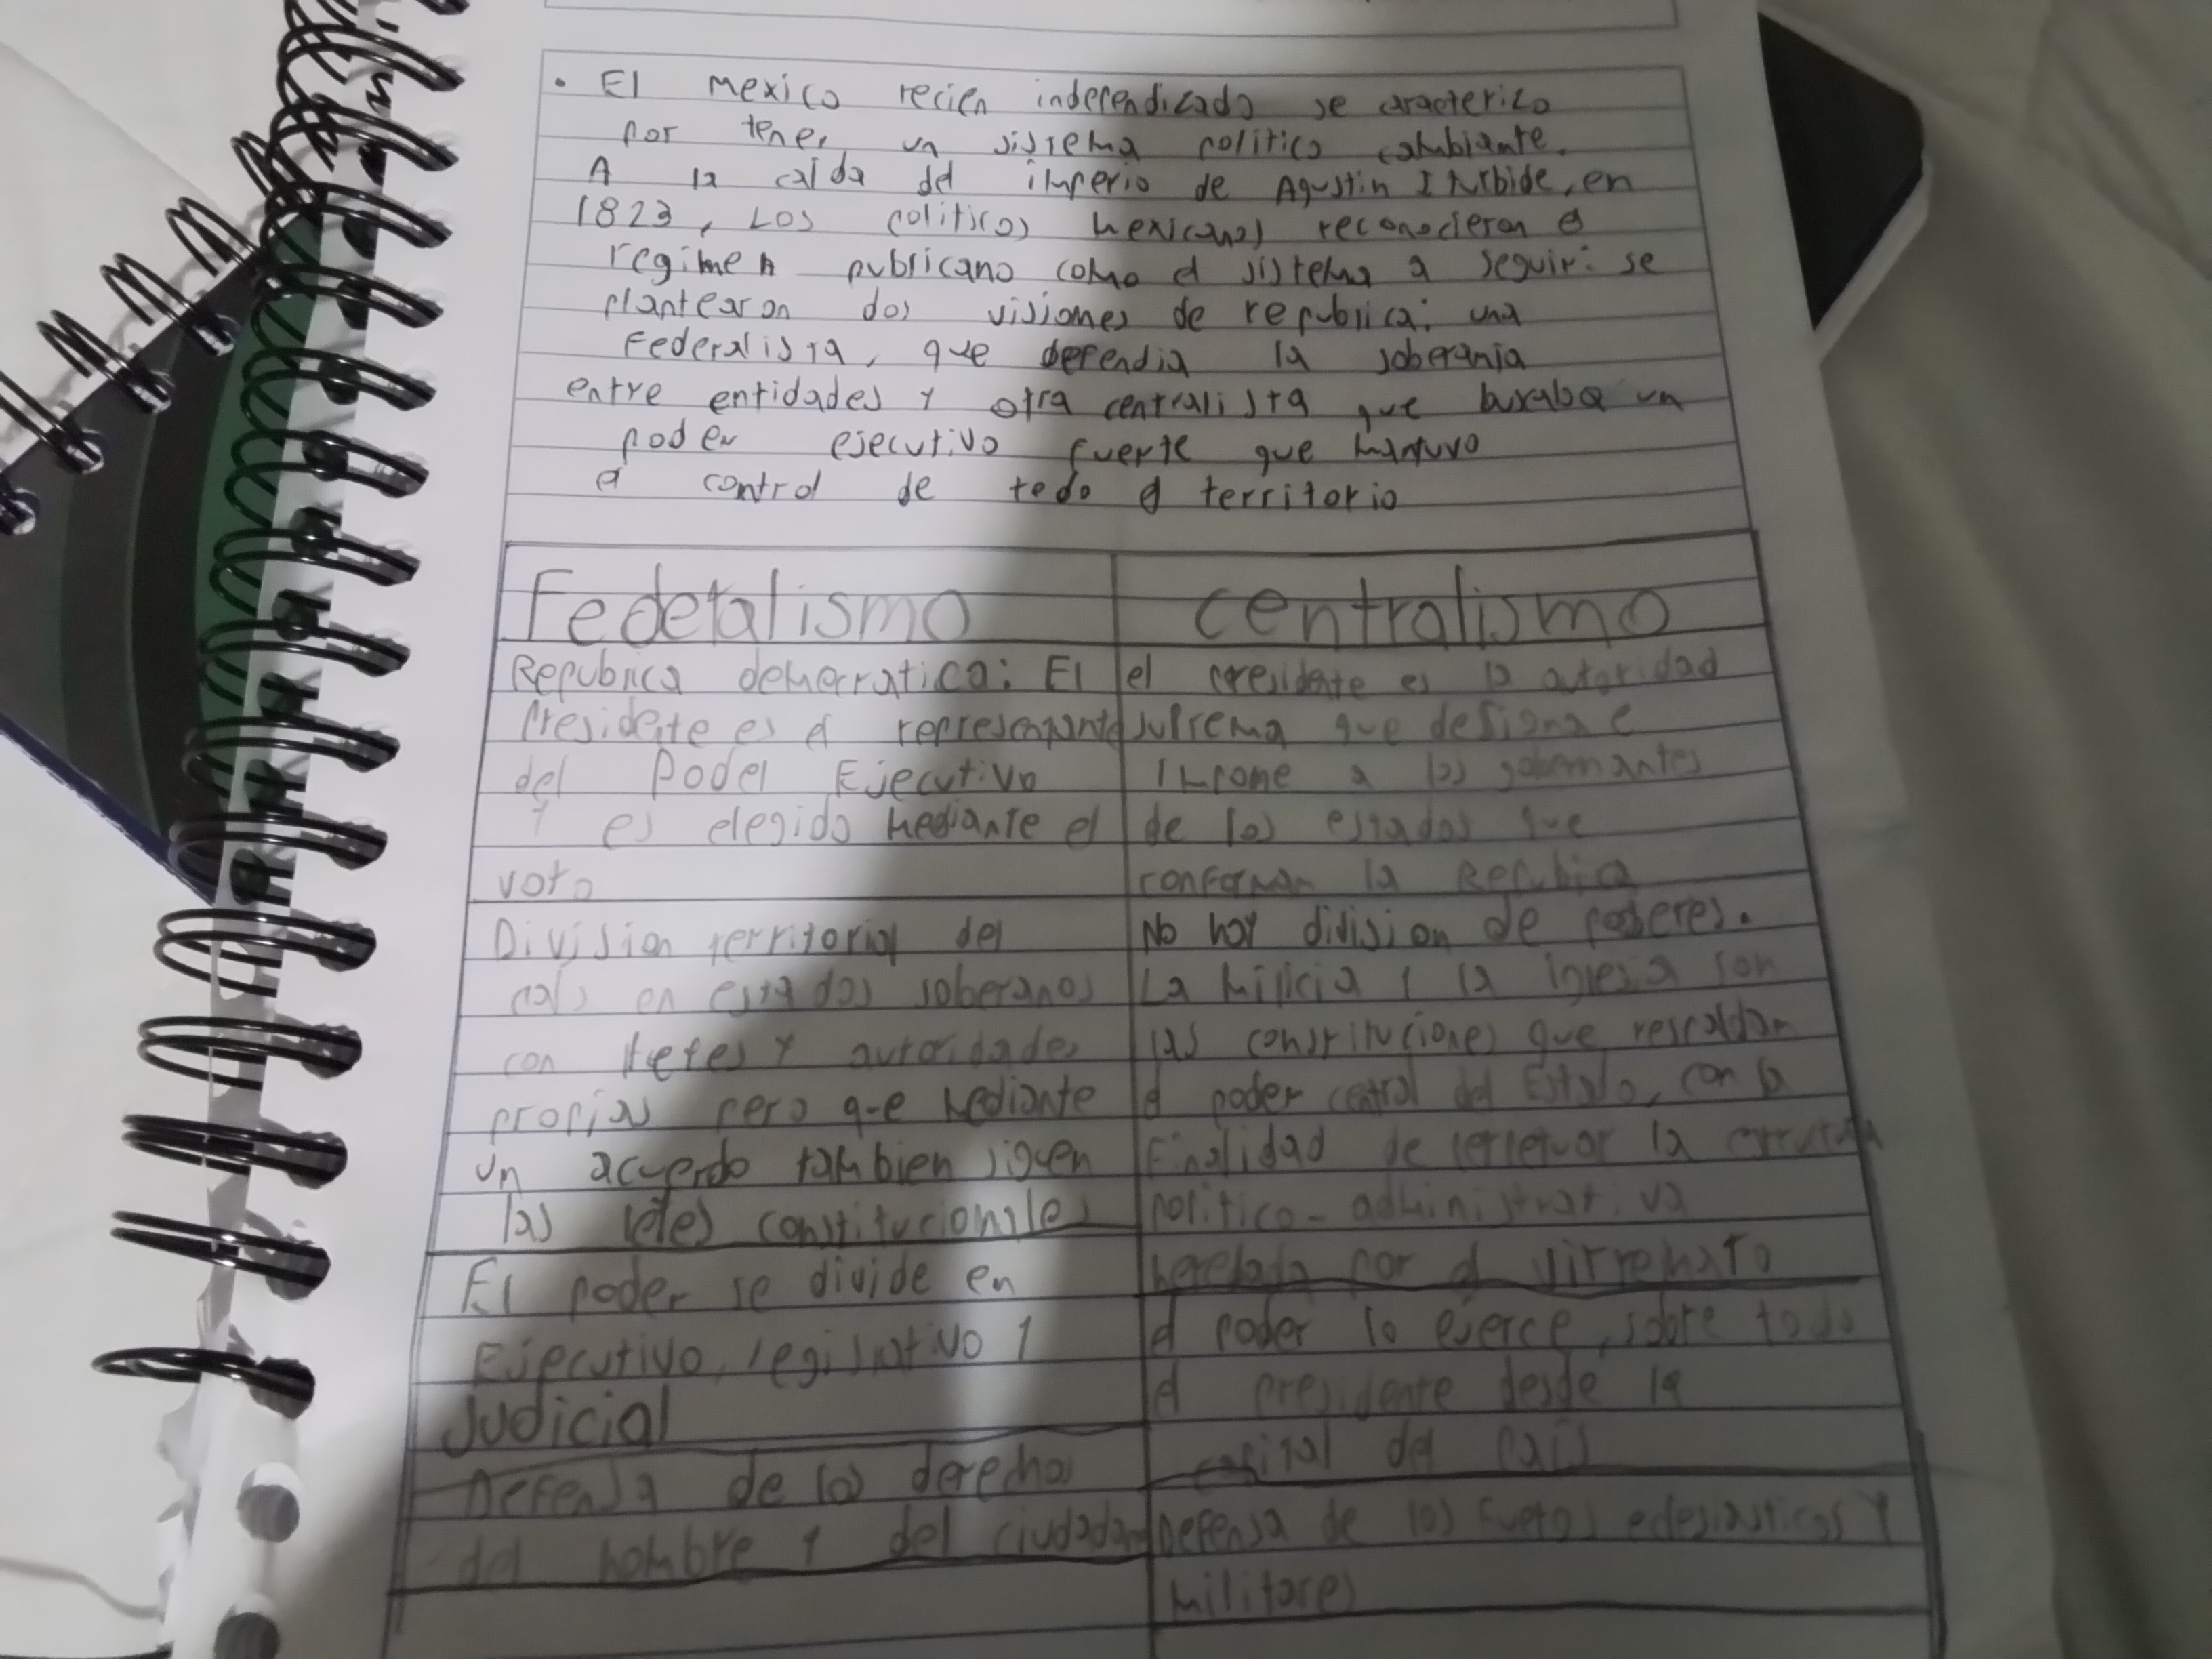 • El mexico recien independizado se caracterizo
por tener un sistema politico cambiante.
A la caida del imperio de Agustin Iturbide, en
1823, Los politicos mexicanos reconocieron el
regimen publicano como el sistema a seguir: se
plantearon dos visiones de republica: una
Federalista, que defendia la soberania
entre entidades y otra centralista que buscaba un
poder ejecutivo fuerte que mantuvo
el control de todo el territorio
Federalismo
Republica democratica: El
Presidente es el representante
del Poder Ejecutivo
y es elegido mediante el
voto
Division territorial del
pais en estados soberanos
con leyes y autoridades
propias pero que mediante
un acuerdo tambien siguen
las leyes constitucionales
El poder se divide en
Ejecutivo, legislativo y
Judicial
Defensa de los derechos
del hombre y del ciudadano
centralismo
el presidente es la autoridad
suprema que designa e
impone a los gobernantes
de los estados que
conforman la Republica
No hay division de poderes.
La milicia y la iglesia son
las constituciones que respaldan
el poder central del Estado, con la
finalidad de perpetuar la estructura
politico-administrativa
heredada por el virreinato
el poder lo ejerce, sobre todo
el presidente desde la
capital del pais
Defensa de los fueros eclesiasticos y
militares